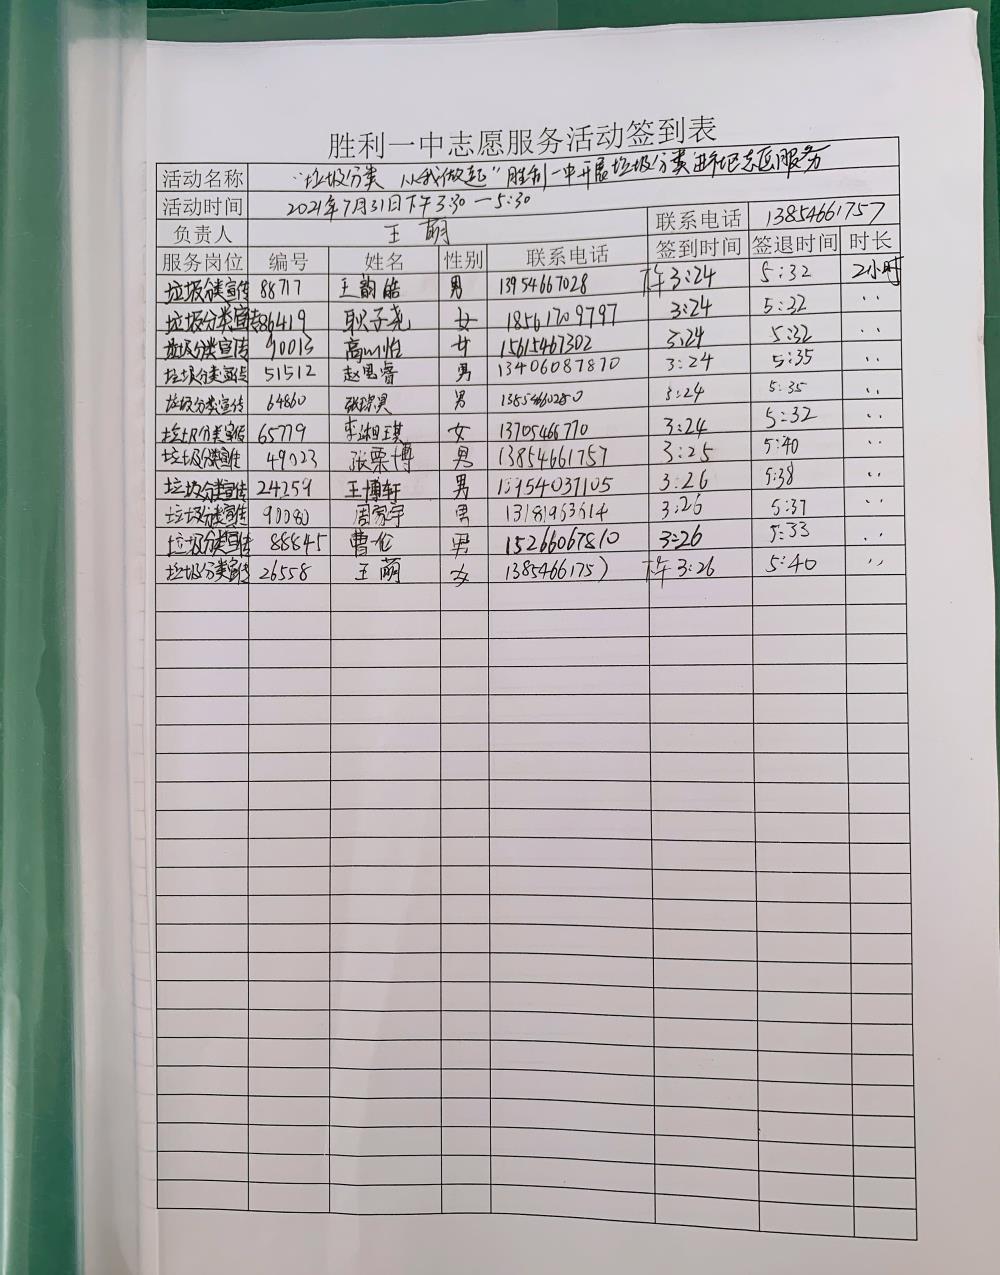 胜利一中志愿服务活动签到表
活动名称 "垃圾分类 从我做起"胜利一中开展垃圾分类进社区志愿服务
活动时间 2021年7月31日下午3:30—5:30
负责人 王萌 联系电话 13854661757
服务岗位 编号 姓名 性别 联系电话 签到时间 签退时间 时长
垃圾分类宣传 88717 王韵皓 男 13954667028 下午3:24 5:32 2小时
垃圾分类宣传 86419 职子尧 女 18561709797 3:24 5:32 ..
垃圾分类宣传 90013 高山怡 女 15615467302 3:24 5:32 ..
垃圾分类宣传 51512 赵思睿 男 13406087870 3:24 5:35 ..
垃圾分类宣传 64860 男 13854660280 3:24 5:35 ..
垃圾分类宣传 65779 李湘琪 女 13705466770 3:24 5:32 ..
垃圾分类宣传 49023 张栗博 男 13854661757 3:25 5:40 ..
垃圾分类宣传 24259 王博轩 男 15954037105 3:26 5:38 ..
垃圾分类宣传 90080 周家宇 男 13181963614 3:26 5:37 ..
垃圾分类宣传 88845 曹伦 男 15266067810 3:26 5:33 ..
垃圾分类宣传 26558 王萌 女 下午3:26 5:40 ..